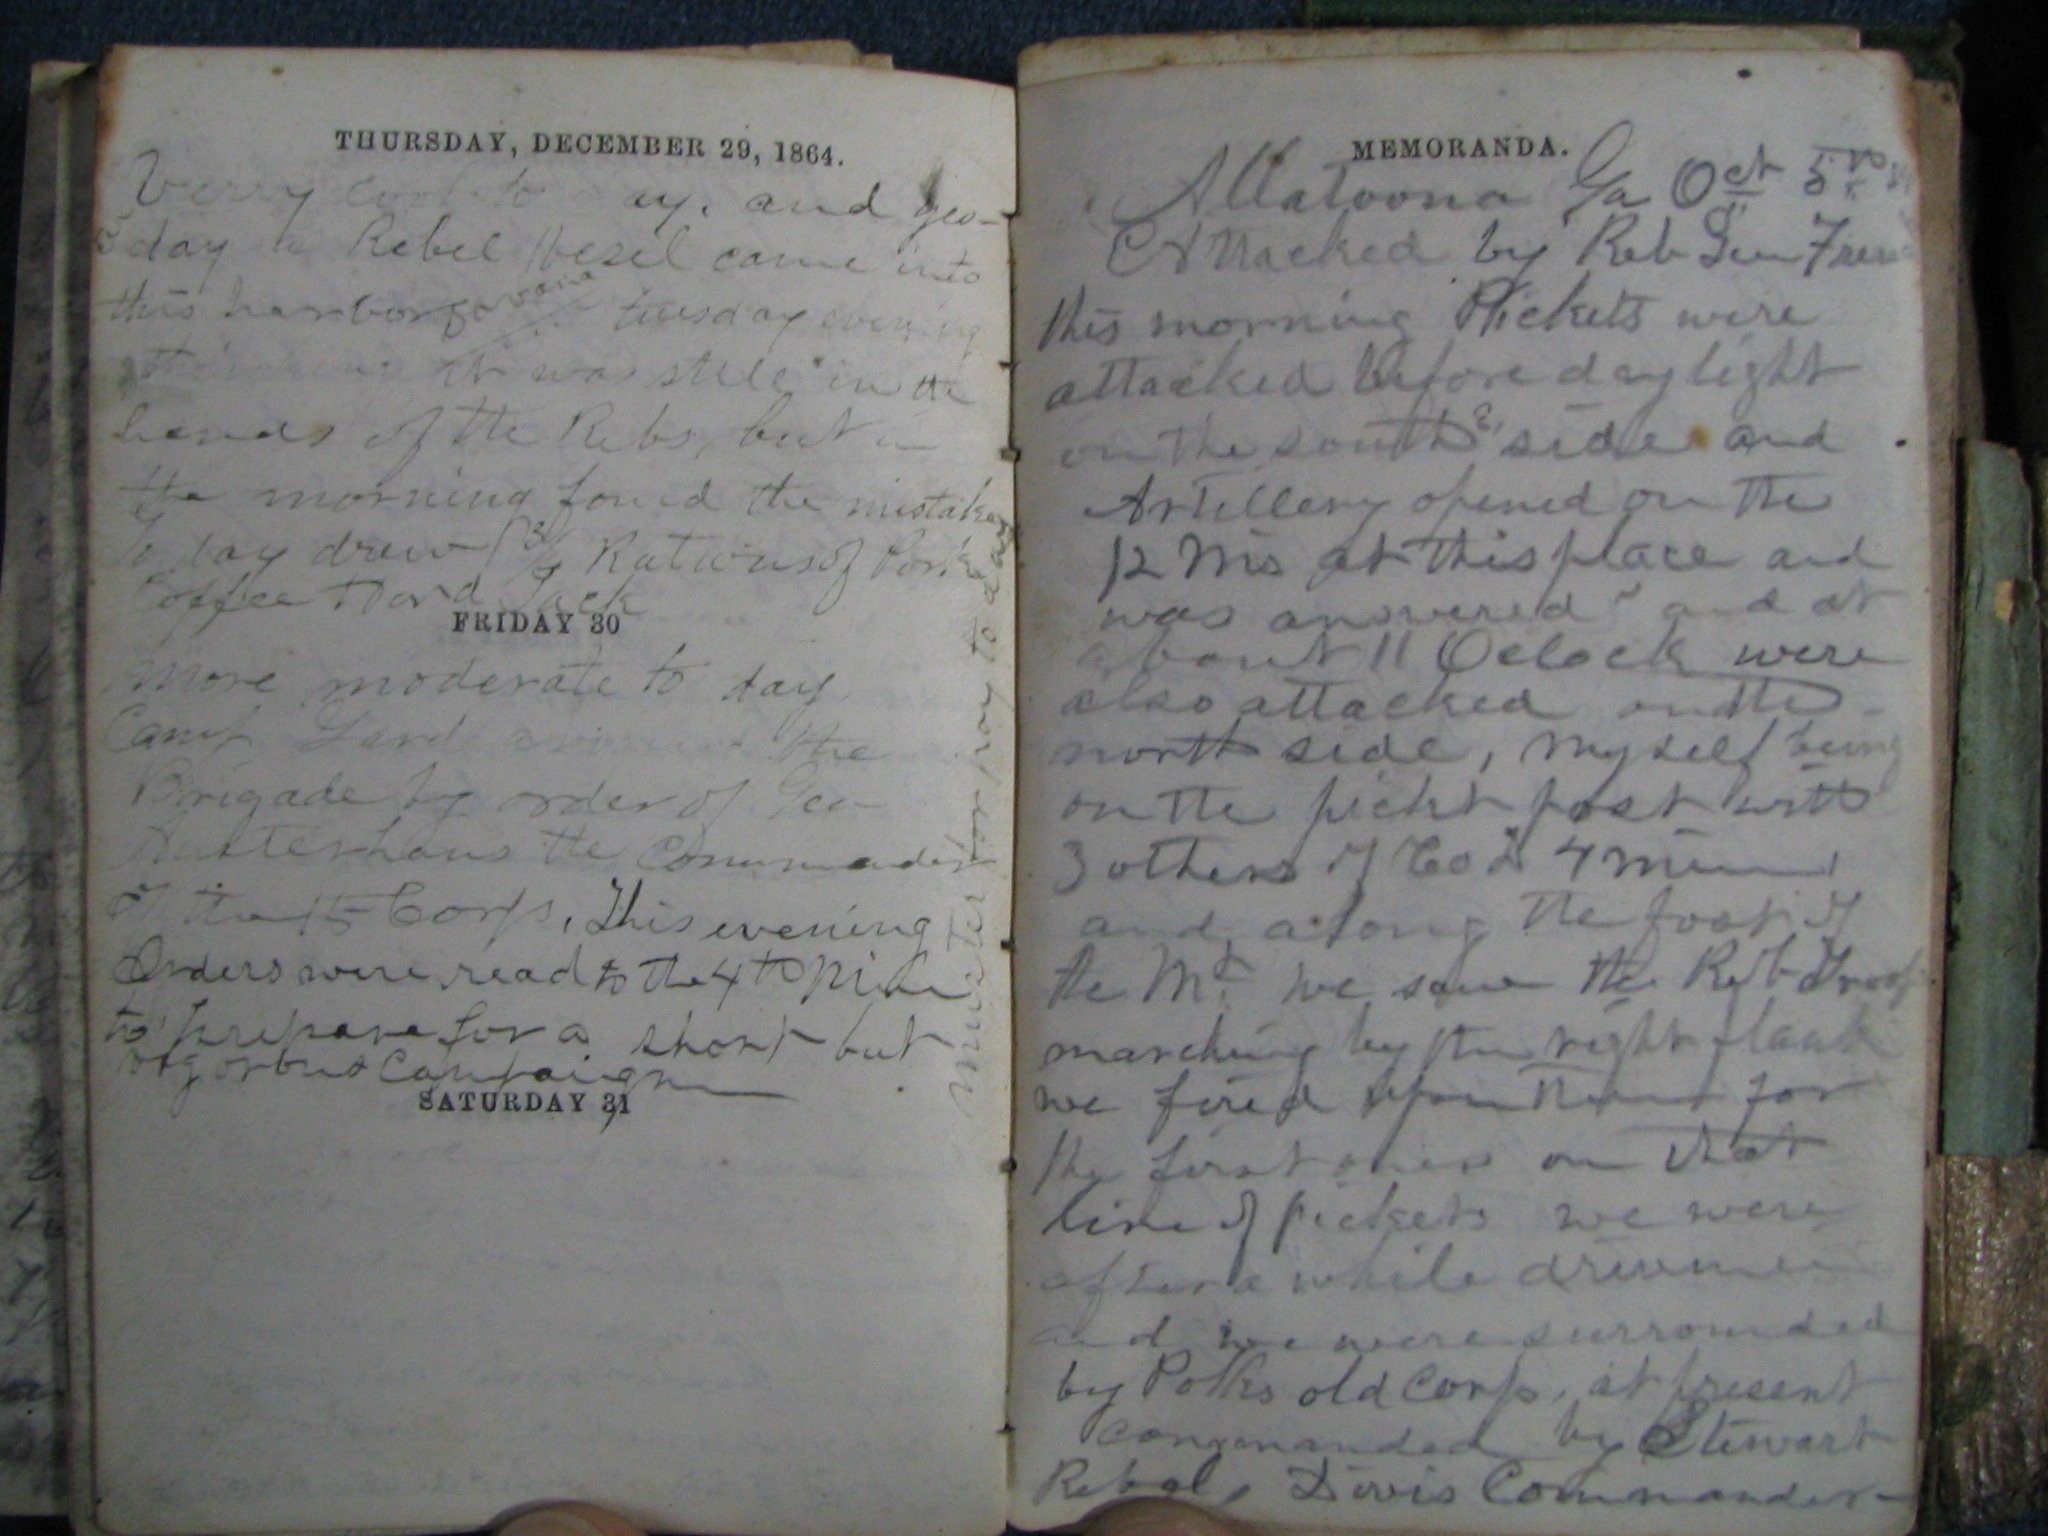 THURSDAY, DECEMBER 29, 1864.
Verry cool to ay. and yes-
day a Rebel Vesel came into
this harbor Savana tuesday evening
thinking it was still in the
hands of the Rebs, but in
the morning found the mistake
To day drew 3/4 Rations of Pork
Coffee & Hard Tack
FRIDAY 30
more moderate to day
Camp Gard around the
Brigade by order of Gen
Austerhaus the Commander
of the 15 Corps, This evening
Orders were read to the 4th Minn
to prepare for a short but
vigorous Campaign
SATURDAY 31
muster for pay to day
MEMORANDA.
Allatoona Ga Oct 5th
Attacked by Reb Gen
this morning Pickets were
attacked before day light
on the south side and
Artillery opened on the
12 Wis at this place and
was answered and at
about 11 Oclock were
also attacked on the
north side, Myself being
on the pickt post with
3 others of Co 4 Minn
and along the foot of
the Mt. we saw the Reb Troops
marching by the right flank
we fired upon them for
the first ones on that
line of pickets we were
after a while driven in
and we were surrounded
by Polks old Corps, at present
commanded by Stewart
Rebel, Divis Commander-